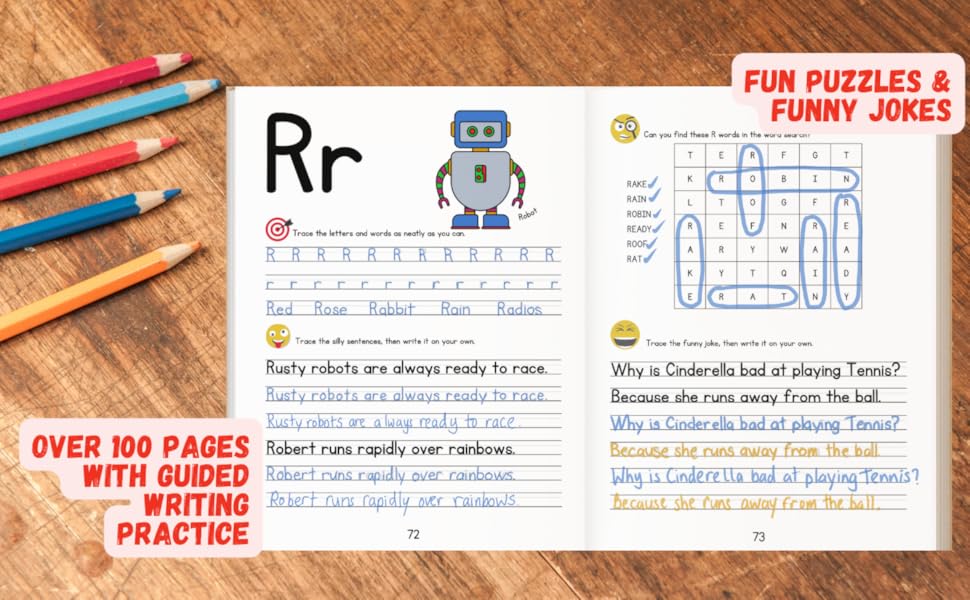 FUN PUZZLES &
FUNNY JOKES
OVER 100 PAGES
WITH GUIDED
WRITING
PRACTICE
Rr
Robot
Trace the letters and words as neatly as you can.
R R R R R R R R R R R R
r r r r r r r r r r r r
Red Rose Rabbit Rain Radios
Trace the silly sentences, then write it on your own.
Rusty robots are always ready to race.
Rusty robots are always ready to race.
Rusty robots are always ready to race.
Robert runs rapidly over rainbows.
Robert runs rapidly over rainbows.
Robert runs rapidly over rainbows.
72
Can you find these R words in the word search?
RAKE
RAIN
ROBIN
READY
ROOF
RAT
T E R F G T
K R O B I N
L T O G F R
R E F N R E
A R Y W A A
K Y T Q I D
E R A T N Y
Trace the funny joke, then write it on your own.
Why is Cinderella bad at playing Tennis?
Because she runs away from the ball.
Why is Cinderella bad at playing Tennis?
Because she runs away from the ball.
Why is Cinderella bad at playing Tennis?
Because she runs away from the ball.
73